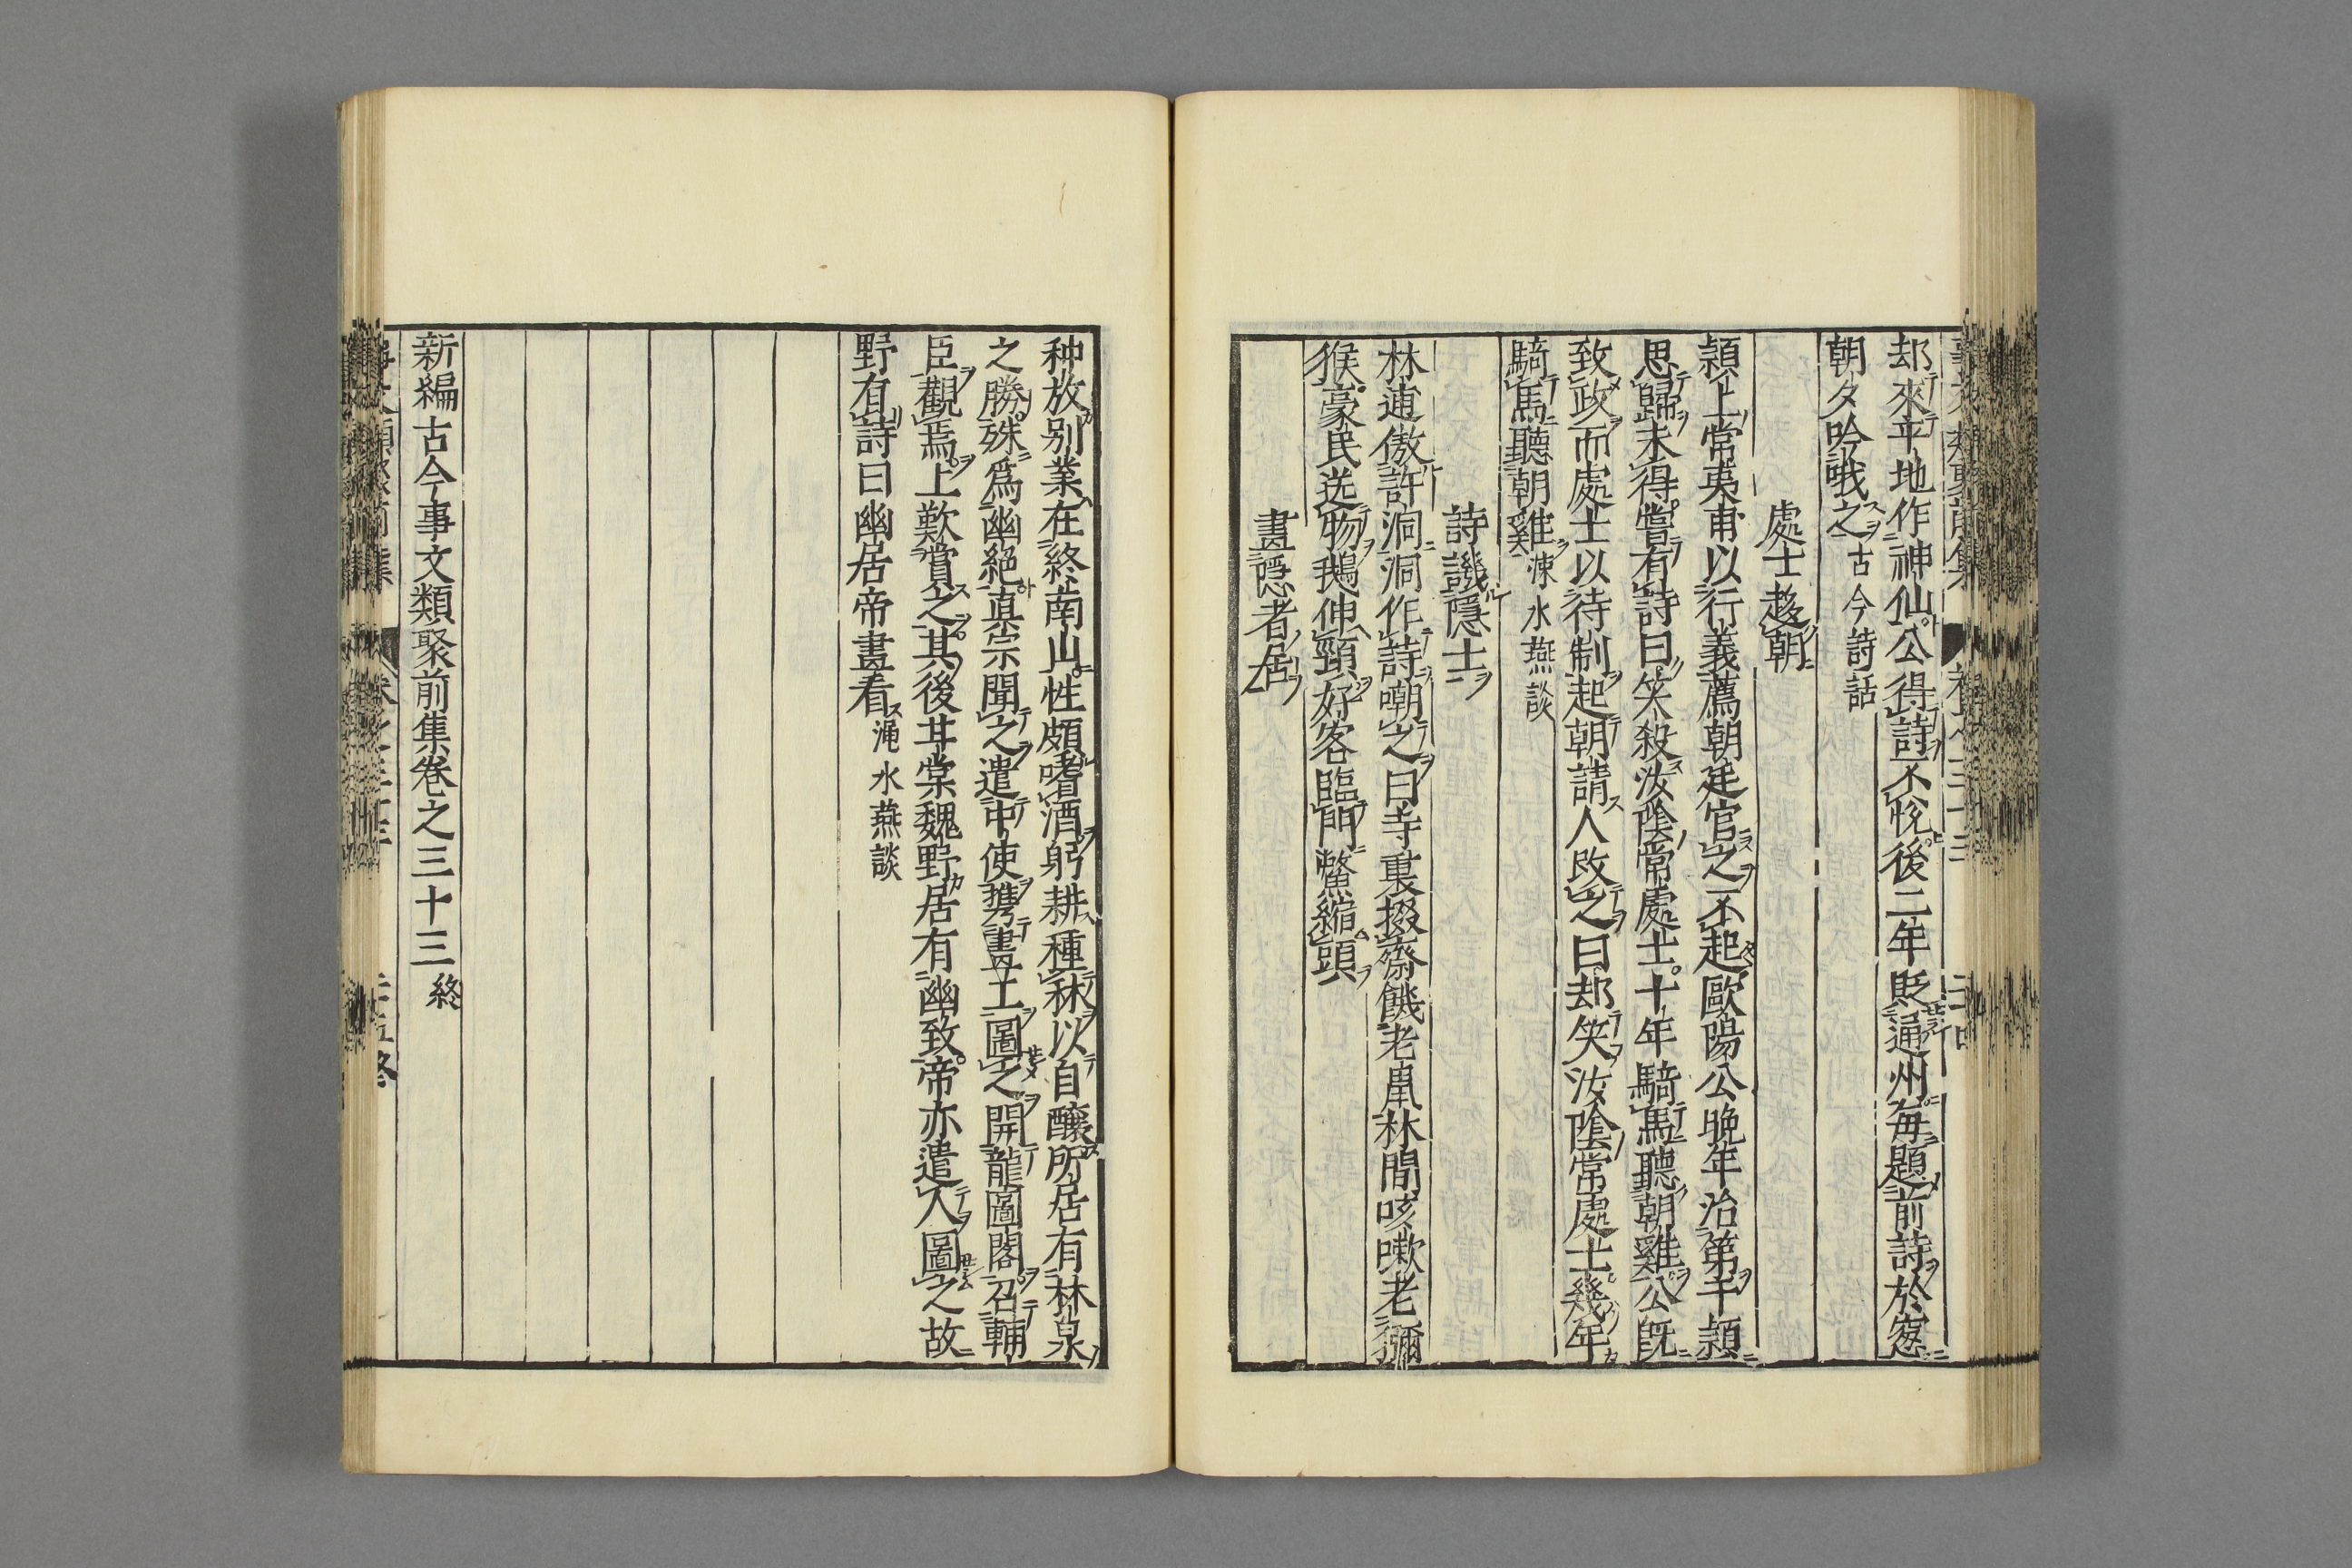 却來平地作神仙公得詩不悅後二年貶通州每題前詩於窓
朝夕吟哦之古今詩話
處士趍朝
潁上常夷甫以行義薦朝廷官之不起歐陽公晚年治第于潁
思歸未得嘗有詩曰笑殺汝陰常處士十年騎馬聽朝雞公旣
致政而處士以待制起朝請人改之曰却笑汝陰常處士幾年
騎馬聽朝雞涑水燕談
詩譏隱士
林逋傲許洞洞作詩嘲之曰寺裏掇齋饑老鼡林間咳嗽老獼
猴豪民送物鵝伸頸好客臨門鱉縮頭
畫隱者居
种放別業在終南山性頗嗜酒躬耕種秫以自釀所居有林泉
之勝殊爲幽絕真宗聞之遣中使携畫工圖之開龍圖閣召輔
臣觀焉上歎賞之其後甘棠魏野居有幽致帝亦遣人圖之故
野有詩曰幽居帝畫看澠水燕談
新編古今事文類聚前集卷之三十三終